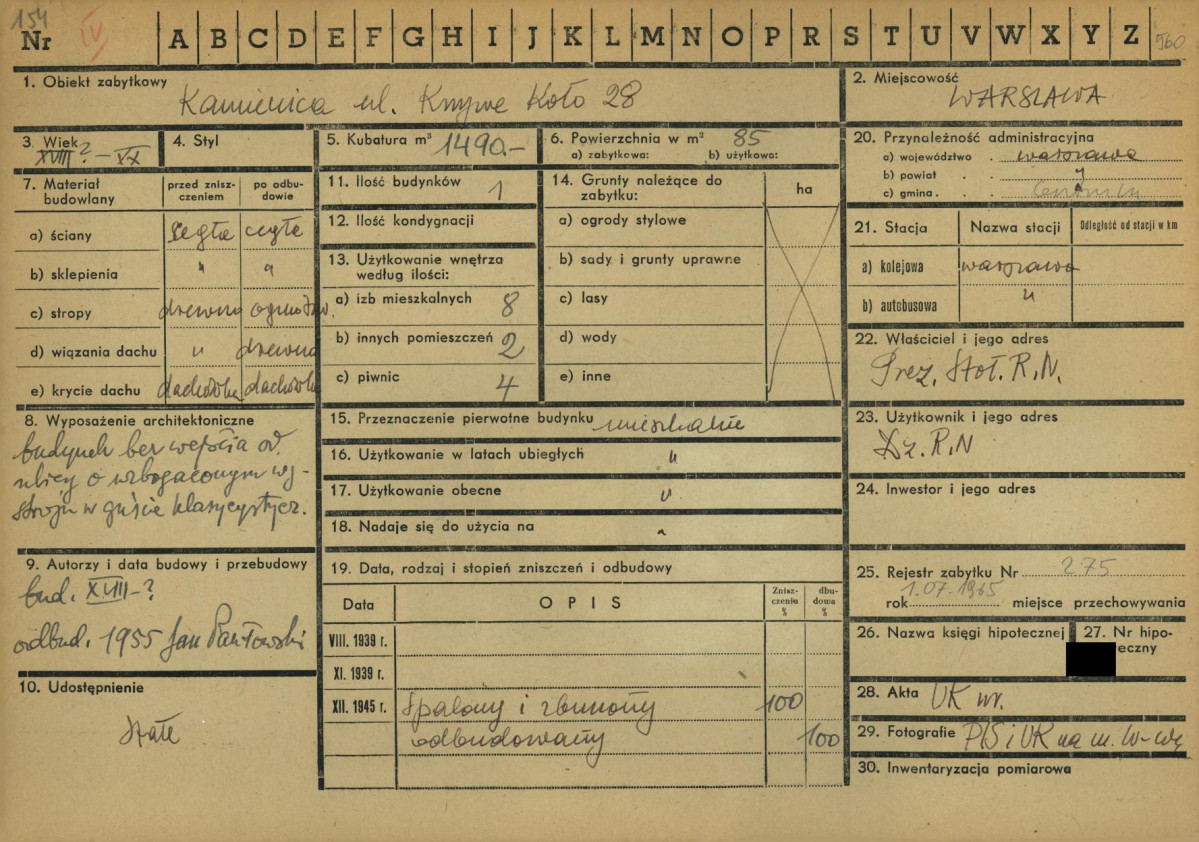 154
Nr IV A B C D E F G H I J K L M N O P R S T U V W X Y Z 560
1. Obiekt zabytkowy
Kamienica ul. Krzywe Koło 28
2. Miejscowość
WARSZAWA
3. Wiek
XVIII? – XX
4. Styl
5. Kubatura m³ 1490.-
6. Powierzchnia w m² 85
a) zabytkowa: b) użytkowa:
20. Przynależność administracyjna
a) województwo . warszawa
b) powiat . . "
c) gmina . . .
7. Materiał budowlany
przed znisz-czeniem
po odbu-dowie
a) ściany cegła cegła
b) sklepienia " "
c) stropy drewno ogniotrw.
d) wiązania dachu " drewno
e) krycie dachu dachówka dachówka
11. Ilość budynków 1
12. Ilość kondygnacji
13. Użytkowanie wnętrza według ilości:
a) izb mieszkalnych 8
b) innych pomieszczeń 2
c) piwnic 4
14. Grunty należące do zabytku:
ha
a) ogrody stylowe
b) sady i grunty uprawne
c) lasy
d) wody
e) inne
21. Stacja Nazwa stacji Odległość od stacji w km
a) kolejowa warszawa
b) autobusowa "
22. Właściciel i jego adres
Prez. Stoł. R.N.
8. Wyposażenie architektoniczne
budynek bez wejścia od
ulicy o wzbogaconym wy-
stroju w guście klasycystycz.
15. Przeznaczenie pierwotne budynku mieszkalne
16. Użytkowanie w latach ubiegłych "
17. Użytkowanie obecne "
18. Nadaje się do użycia na "
23. Użytkownik i jego adres
Dz. R.N
24. Inwestor i jego adres
9. Autorzy i data budowy i przebudowy
bud. XVIII-?
odbud. 1955 Jan
19. Data, rodzaj i stopień zniszczeń i odbudowy
Data OPIS Znisz-czenia % dbu-dowa %
VIII. 1939 r.
XI. 1939 r.
XII. 1945 r. spalony i zburzony 100
odbudowany 100
25. Rejestr zabytku Nr 275
rok 1.07.1965 miejsce przechowywania
26. Nazwa księgi hipotecznej
27. Nr hipo-
eczny
10. Udostępnienie
stałe
28. Akta UK wr.
29. Fotografie PIS i UK na m. W-wę
30. Inwentaryzacja pomiarowa